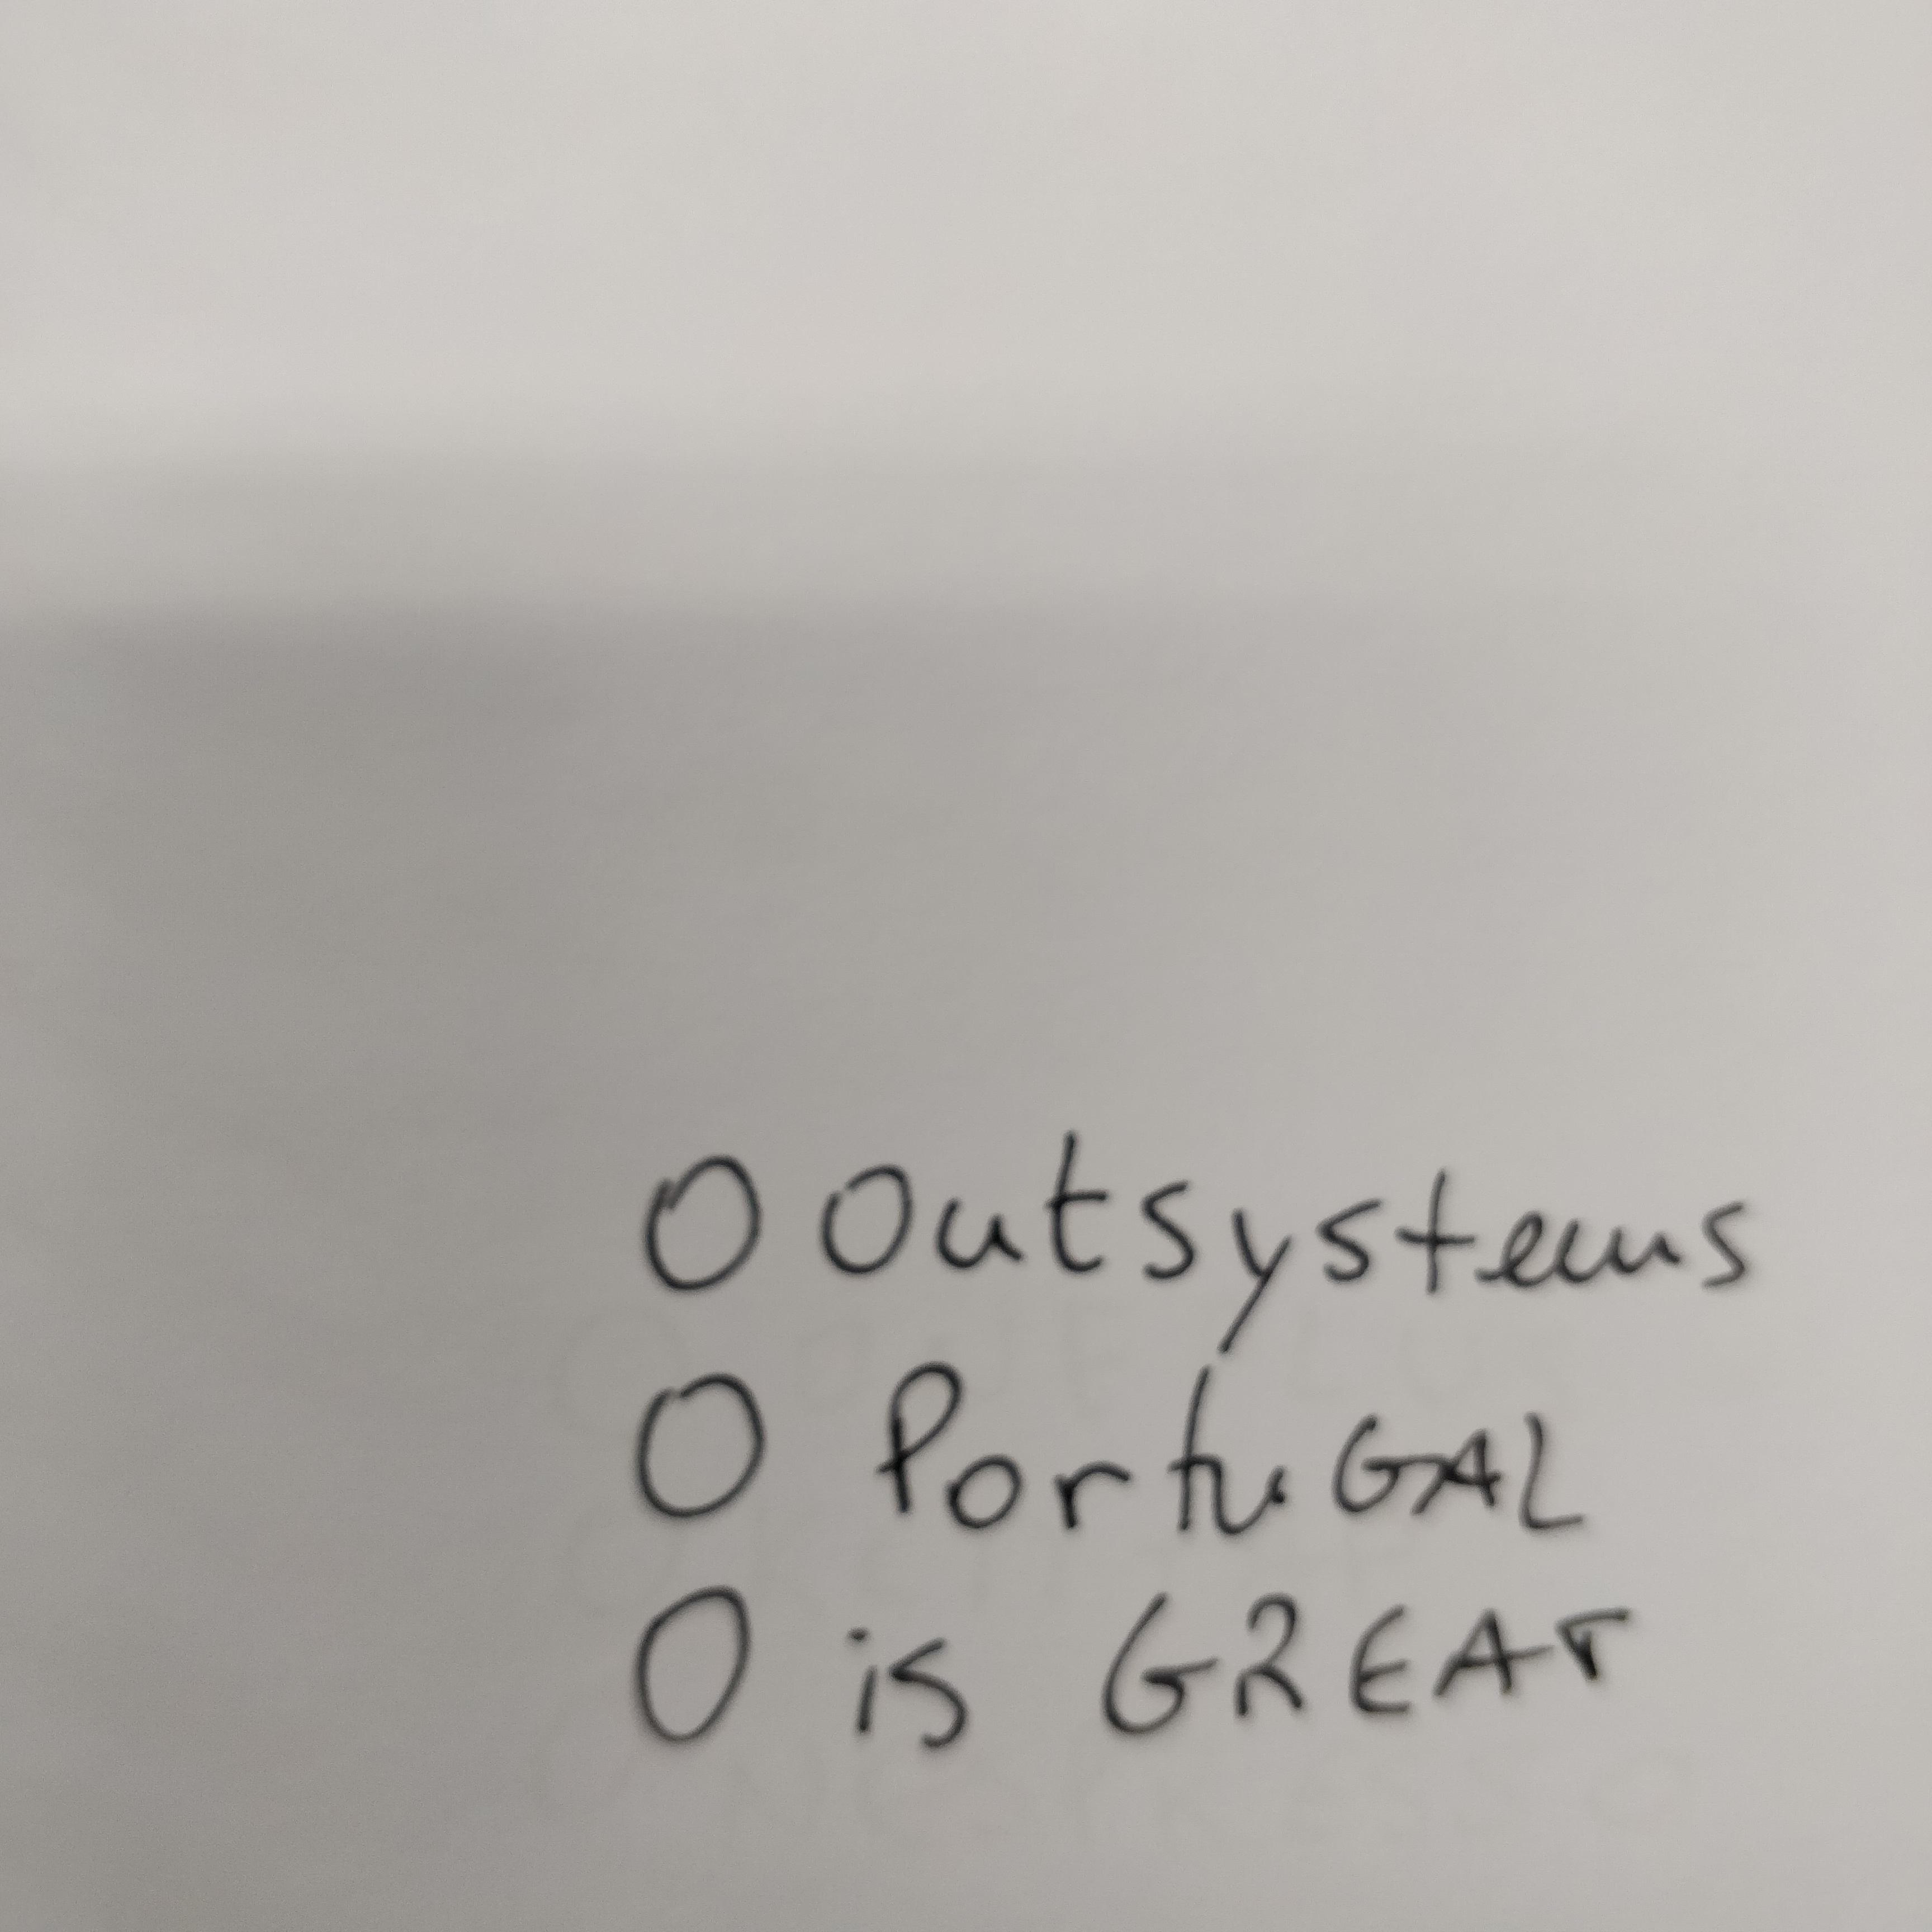 O Outsystems
O PortuGAL
O is GREAT